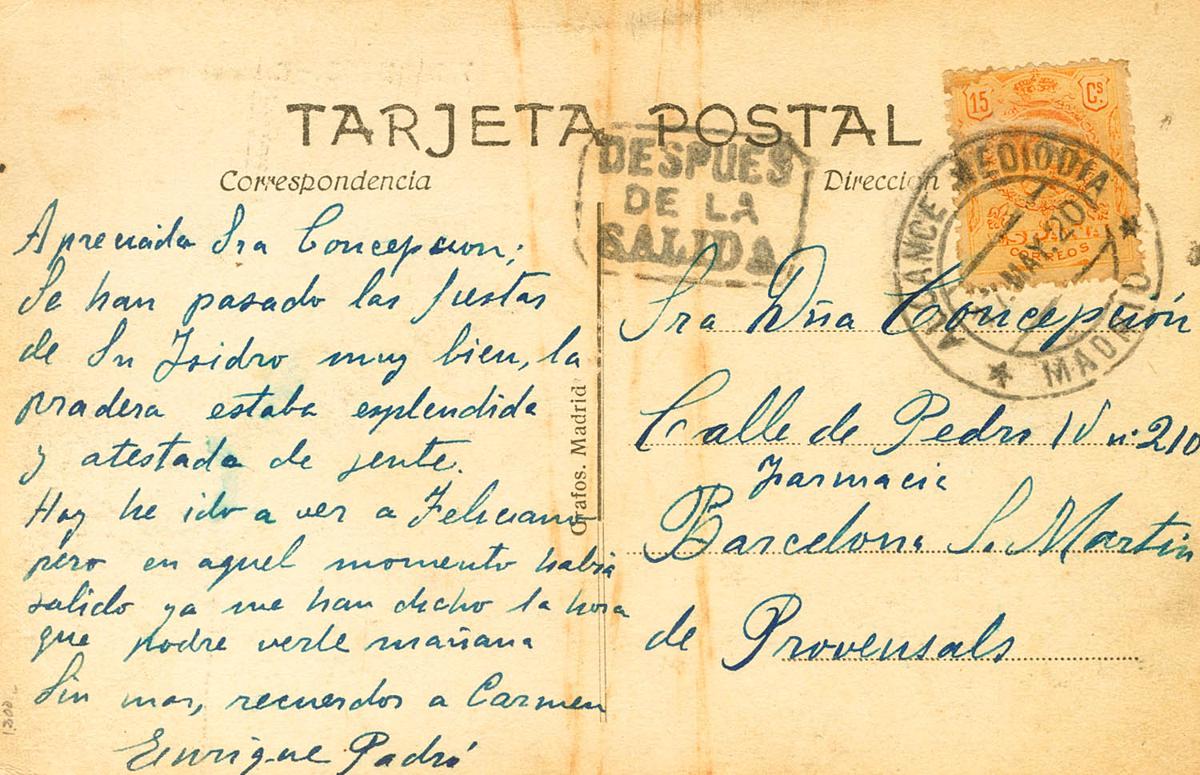 TARJETA POSTAL
Correspondencia
Dirección
DESPUES
DE LA
SALIDA
15 Cs.
CORREOS
ALCANCE MEDIODIA
MAY 20
MADRID
Apreciada Sra Concepción;
Se han pasado las fiestas
de Sn Isidro muy bien, la
pradera estaba esplendida
y atestada de jente.
Hoy he ido a ver a Feliciano
pero en aquel momento habia
salido ya me han dicho la hora
que podre verle mañana
Sin mas, recuerdos a Carmen
Enrique Padró
Grafos. Madrid
Sra Dña Concepción
Calle de Pedro IV nº 210
Farmacia
Barcelona S. Martin
de Provensals
1300.